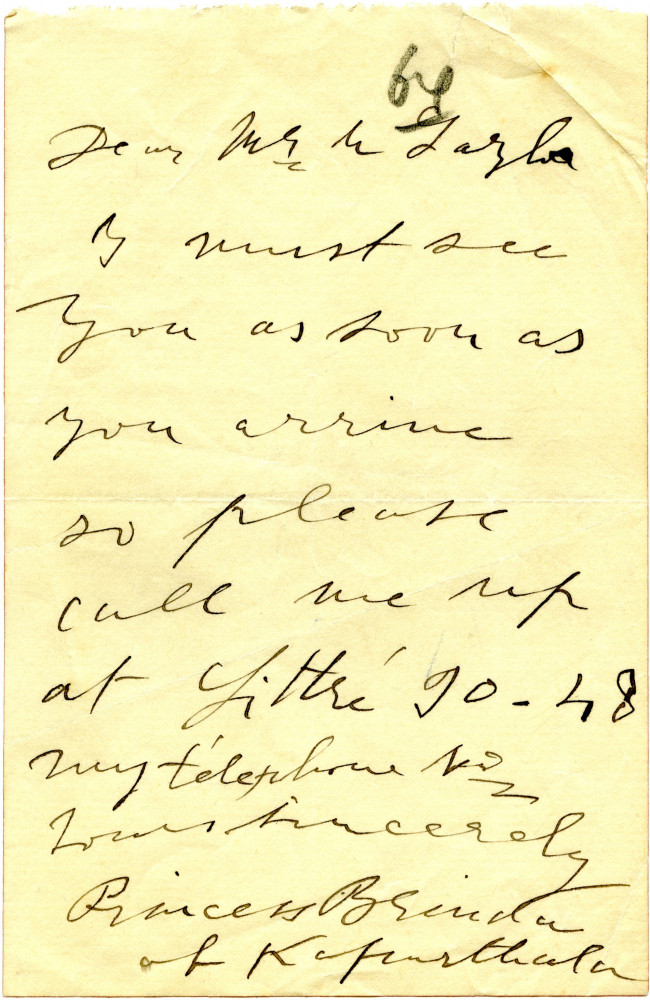 64
Dear Mr Taylor
I must see
you as soon as
you arrive
so please
call me up
at Littré 90-48
my télephone No
Yours sincerely
Princess Brinda
of Kapurthala